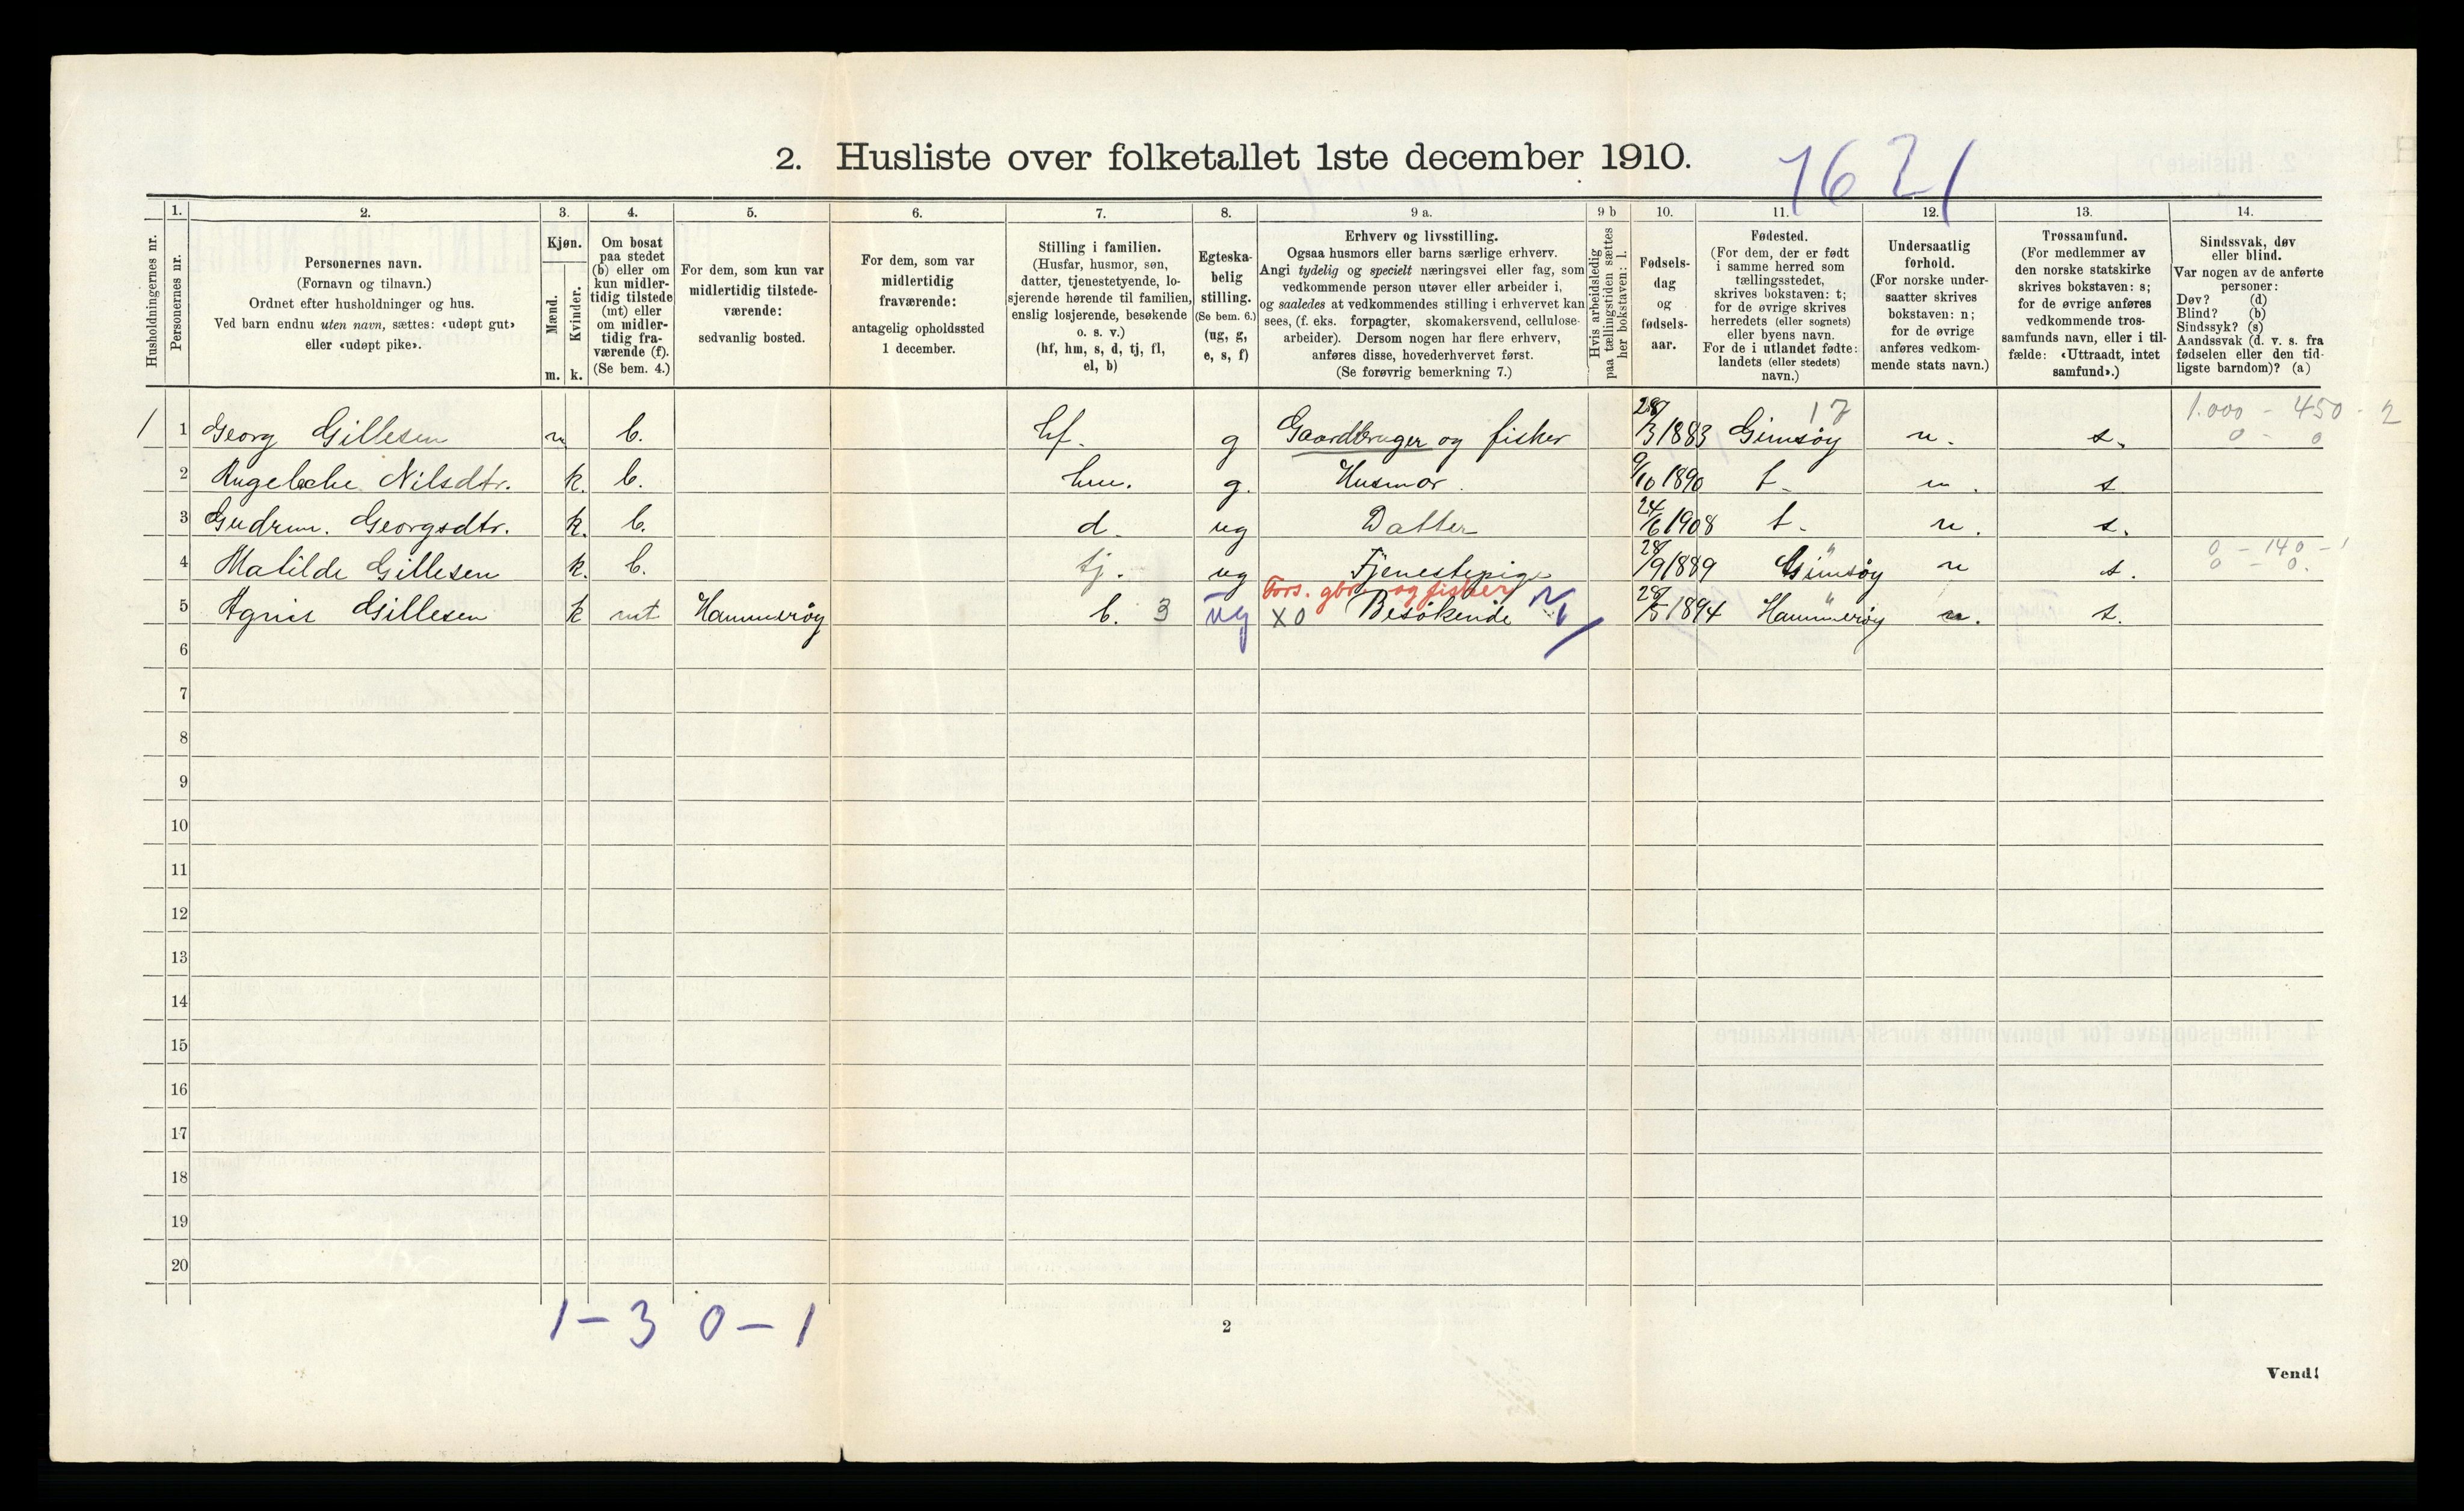 2. Husliste over folketallet 1ste december 1910.
1621
1. 2. 3. 4. 5. 6. 7. 8. 9 a. 9 b 10. 11. 12. 13. 14.
Husholdningernes nr.
Personernes nr.
Personernes navn.
(Fornavn og tilnavn.)
Ordnet efter husholdninger og hus.
Ved barn endnu uten navn, sættes: «udøpt gut»
eller «udøpt pike».
Kjøn.
Mænd.
Kvinder.
m. k.
Om bosat
paa stedet
(b) eller om
kun midler-
tidig tilstede
(mt) eller
om midler-
tidig fra-
værende (f).
(Se bem. 4.)
For dem, som kun var
midlertidig tilstede-
værende:
sedvanlig bosted.
For dem, som var
midlertidig
fraværende:
antagelig opholdssted
1 december.
Stilling i familien.
(Husfar, husmor, søn,
datter, tjenestetyende, lo-
sjerende hørende til familien,
enslig losjerende, besøkende
o. s. v.)
(hf, hm, s, d, tj, fl,
el, b)
Egteska-
belig
stilling.
(Se bem. 6.)
(ug, g,
e, s, f)
Erhverv og livsstilling.
Ogsaa husmors eller barns særlige erhverv.
Angi tydelig og specielt næringsvei eller fag, som
vedkommende person utøver eller arbeider i,
og saaledes at vedkommendes stilling i erhvervet kan
sees, (f. eks. forpagter, skomakersvend, cellulose-
arbeider). Dersom nogen har flere erhverv,
anføres disse, hovederhvervet først.
(Se forøvrig bemerkning 7.)
Hvis arbeidsledig
paa tællingstiden sættes
her bokstaven: l.
Fødsels-
dag
og
fødsels-
aar.
Fødested.
(For dem, der er født
i samme herred som
tællingsstedet,
skrives bokstaven: t;
for de øvrige skrives
herredets (eller sognets)
eller byens navn.
For de i utlandet fødte:
landets (eller stedets)
navn.)
Undersaatlig
forhold.
(For norske under-
saatter skrives
bokstaven: n;
for de øvrige
anføres vedkom-
mende stats navn.)
Trossamfund.
(For medlemmer av
den norske statskirke
skrives bokstaven: s;
for de øvrige anføres
vedkommende tros-
samfunds navn, eller i til-
fælde: «Uttraadt, intet
samfund».)
Sindssvak, døv
eller blind.
Var nogen av de anførte
personer:
Døv? (d)
Blind? (b)
Sindssyk? (s)
Aandssvak (d. v. s. fra
fødselen eller den tid-
ligste barndom)? (a)
17 1.000 - 450 - 2
1 1 Georg Gillesen m b. hf. g Gaardbruger og fisker 28/3 1883 Gimsøy n. s. 0 - 0
2 Nilsdtr. k. b. hm. g. Husmor. 9/10 1890 t. n. s
3 Gudrun. Georgsdtr. k. b. d. ug Datter 24/6 1908 t. n. s.
0 - 140 - 1
4 Matilde Gillesen k. b. tj. ug Tjenestepige 28/9 1889 Gimsøy n s. 0 - 0.
Fors. gbr. og fisker
5 Agnes Gillesen k mt Hammerøy b. 3 ug X0 Besøkende 28/5 1894 Hammerøy n. s.
6
7
8
9
10
11
12
13
14
15
16
17
18
19
20
1 - 3 0 - 1
2
Vend!